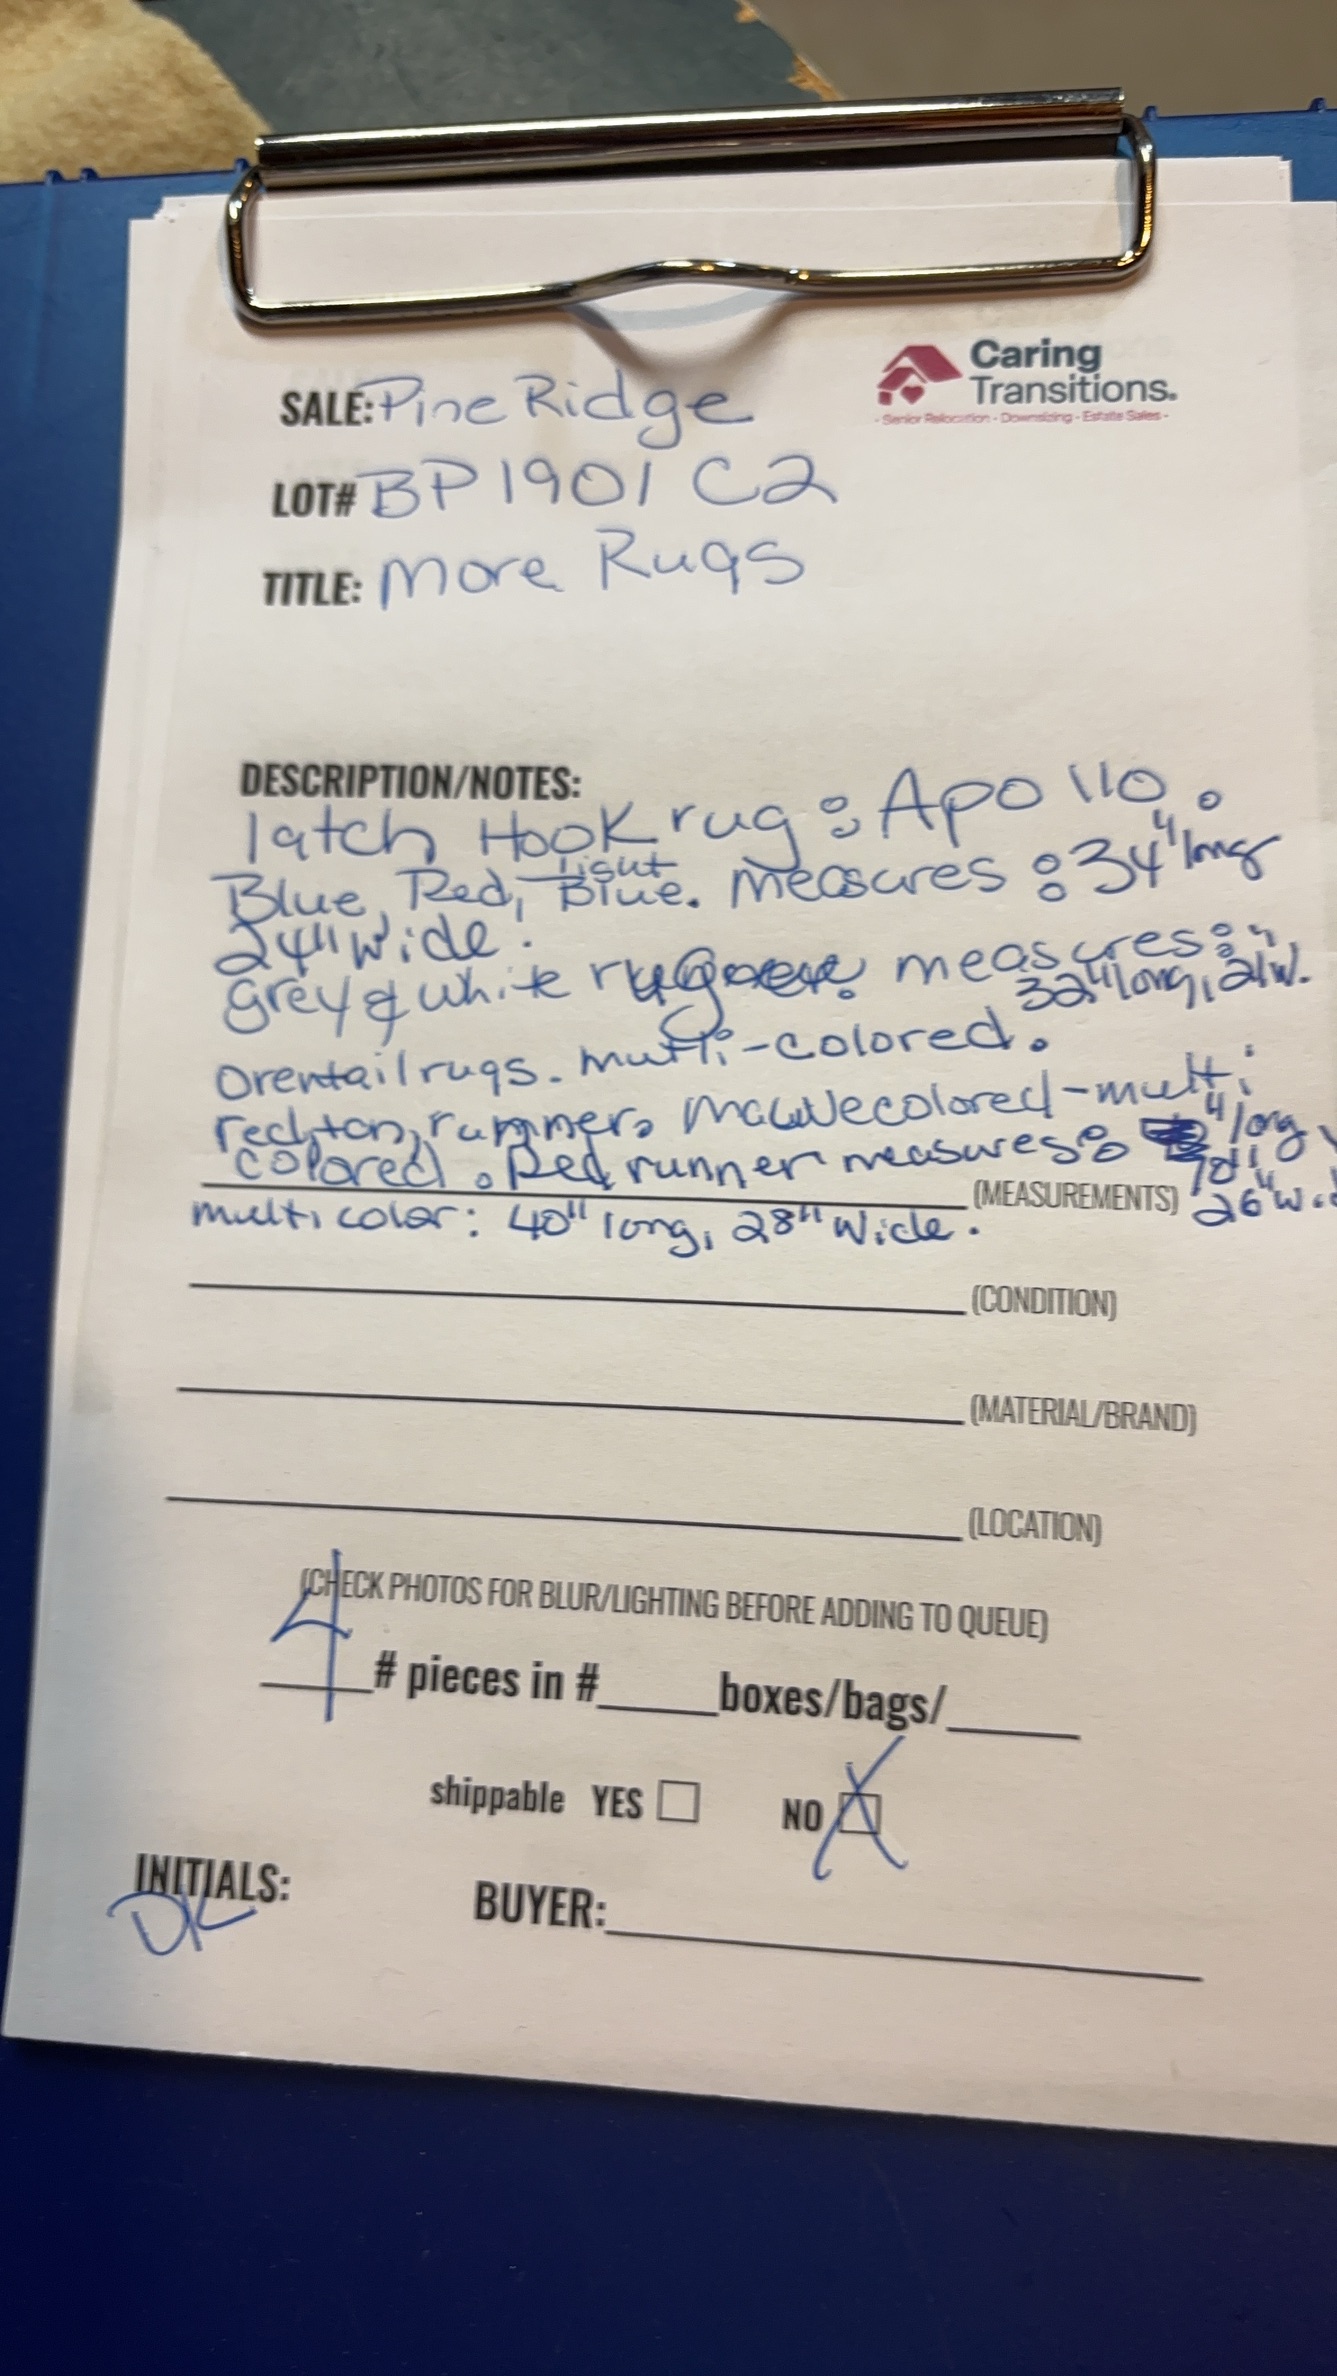 Caring
Transitions.
- Senior Relocation - Downsizing - Estate Sales -
SALE: Pine Ridge
LOT# BP1901 C2
TITLE: More Rugs
DESCRIPTION/NOTES:
latch Hook rug: Apollo.
Blue, Red, light Blue. measures: 34" long
24" wide.
grey & white rug measures:
32" long, 21" w.
Orentail rugs. multi-colored.
red, tan, runner. Mauvecolored-multi
colored. Red runner measures: " long
26" w.
(MEASUREMENTS)
multi color: 40" long, 28" wide.
(CONDITION)
(MATERIAL/BRAND)
(LOCATION)
(CHECK PHOTOS FOR BLUR/LIGHTING BEFORE ADDING TO QUEUE)
4 # pieces in #_____boxes/bags/_____
shippable YES NO X
INITIALS: DK
BUYER: